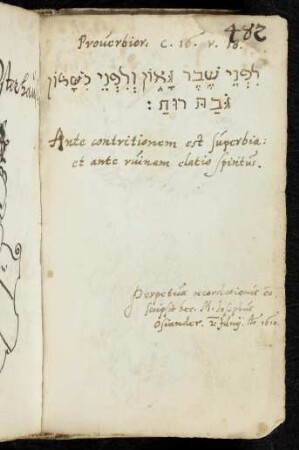 482
Proverbior. C. 16. v. 18.
לִפְנֵי שֶׁבֶר גָּאוֹן וְלִפְנֵי כִשָּׁלוֹן
גֹּבַהּ רוּחַ:
Ante contritionem est superbia:
et ante ruinam elatio spiritus.
Perpetuæ recordationis
scripsit hec. M. Josephus
Osiander.